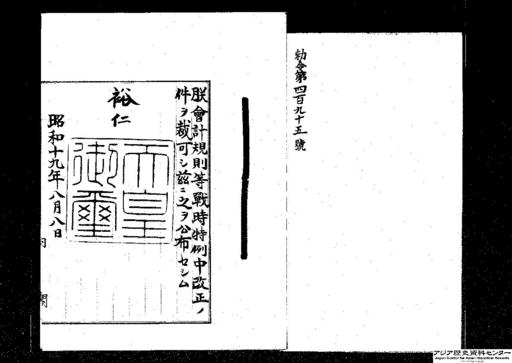 勅令第四百九十五號
朕會計規則等戰時特例中改正ノ
件ヲ裁可シ茲ニ之ヲ公布セシム
裕仁
天皇
御璽
昭和十九年八月八日
内閣
アジア歴史資料センター
Japan Center for Asian Historical Records